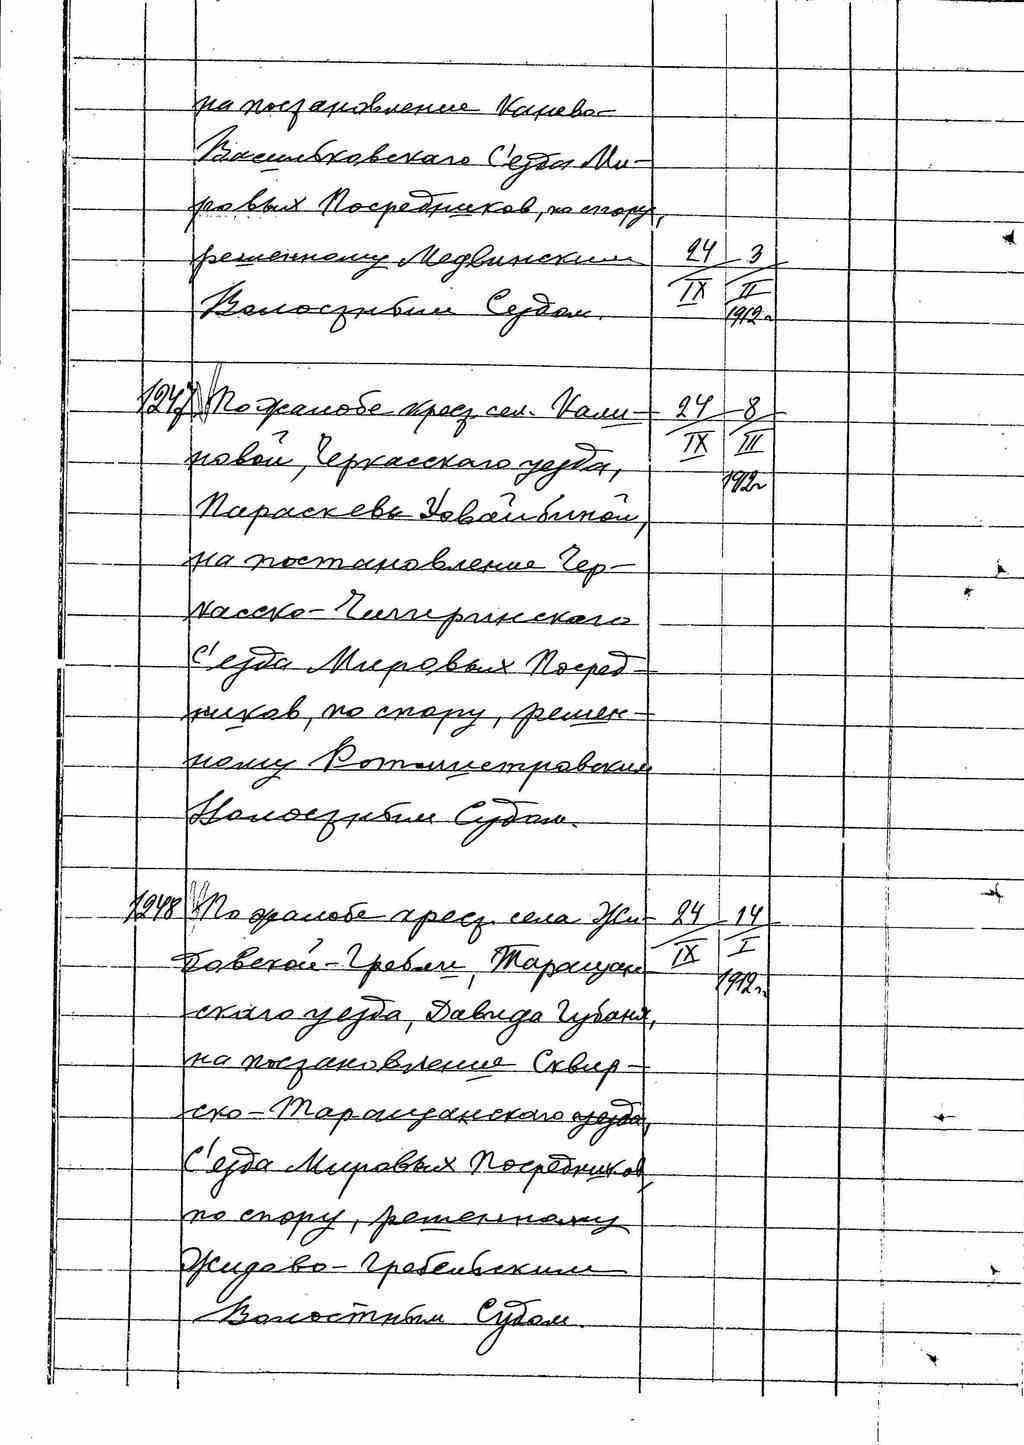 на постановление Канево-
Васильковскаго С'езда Ми-
ровых Посредников, по спору,
решенному Медвинским 24 3
IX II
Волостным Судом. 1912г
1247 По жалобе крест. сел. Кали- 24 8
IX III
новой, Черкасскаго уезда, 1912г
Параскевы
на постановление Чер-
касско-Чигиринскаго
С'езда Мировых Посред-
ников, по спору, решен-
ному Ротмистровским
Волостным Судом.
1248 По жалобе крест. села Жи- 24 14
IX I
довской-Гребли, Таращан 1912г.
скаго уезда, Давида Губаня,
на постановление Сквир-
ско-Таращанскаго уезда,
С'езда Мировых Посредников,
по спору, решенному
Жидово-Гребельским
Волостным Судом.